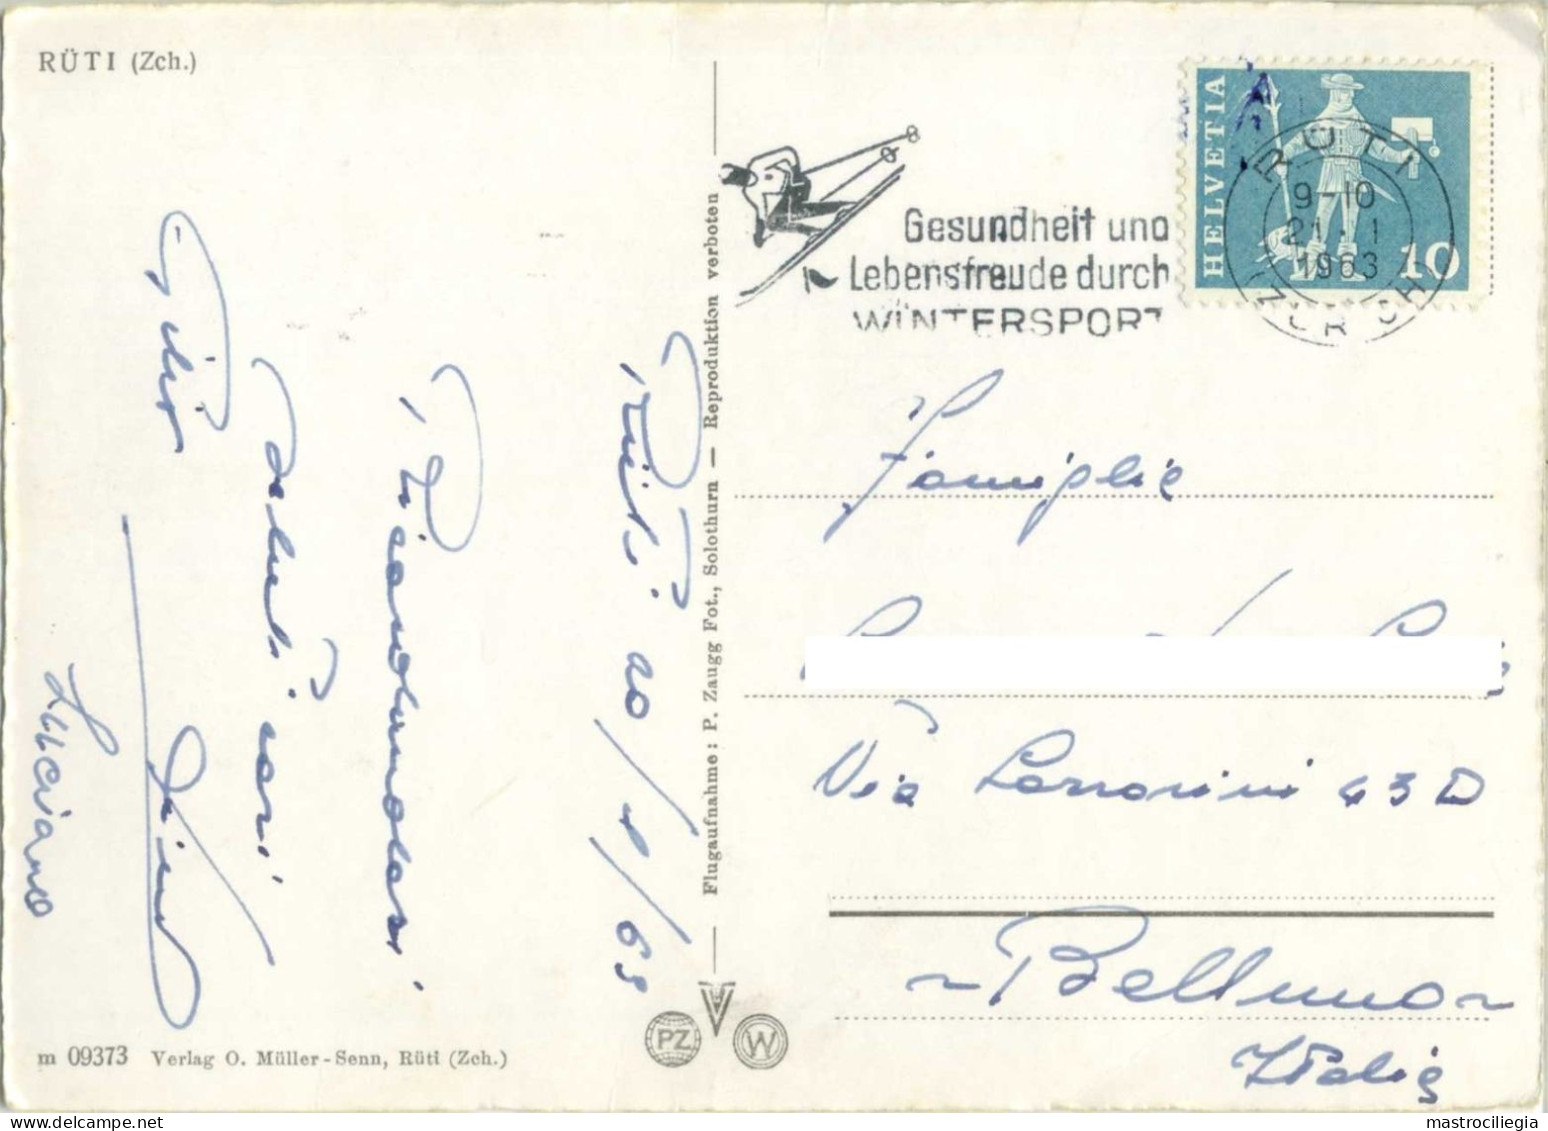 RÜTI (Zch.)
Rüti 20/1/63
Ricordandovi
Saluti cari
Luciano
m 09373 Verlag O. Müller-Senn, Rüti (Zch.)
Flugaufnahme: P. Zaugg Fot., Solothurn — Reproduktion verboten
PZ
W
Gesundheit und
Lebensfreude durch
WINTERSPORT
HELVETIA
10
RÜTI
9-10
21.-1
1963
(ZÜRICH)
Famiglia
Via 43 D
~ Belluno ~
Italia
mastrociliegia